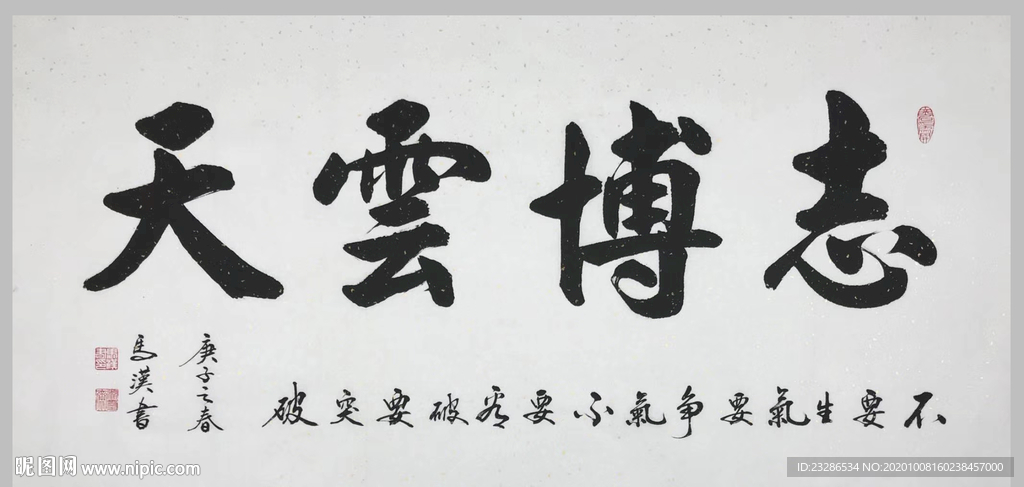 志博雲天
不要生氣要争氣不要看破要突破
庚子之春
馬漢書
昵图网 www.nipic.com
ID:23286534 NO:20201008160238457000